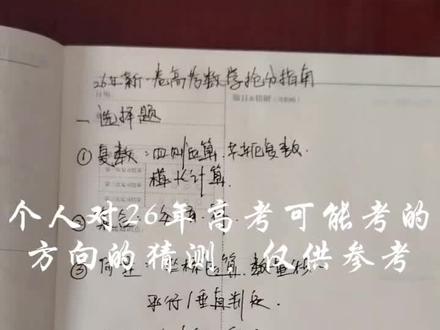 26年新一卷高考数学抢分指南
一 选择题
① 复数：四则运算，共轭复数，
模长计算
个人对26年高考可能考的
方向的猜测，仅供参考
③ 向量：坐标运算，数量积，
平行/垂直判定